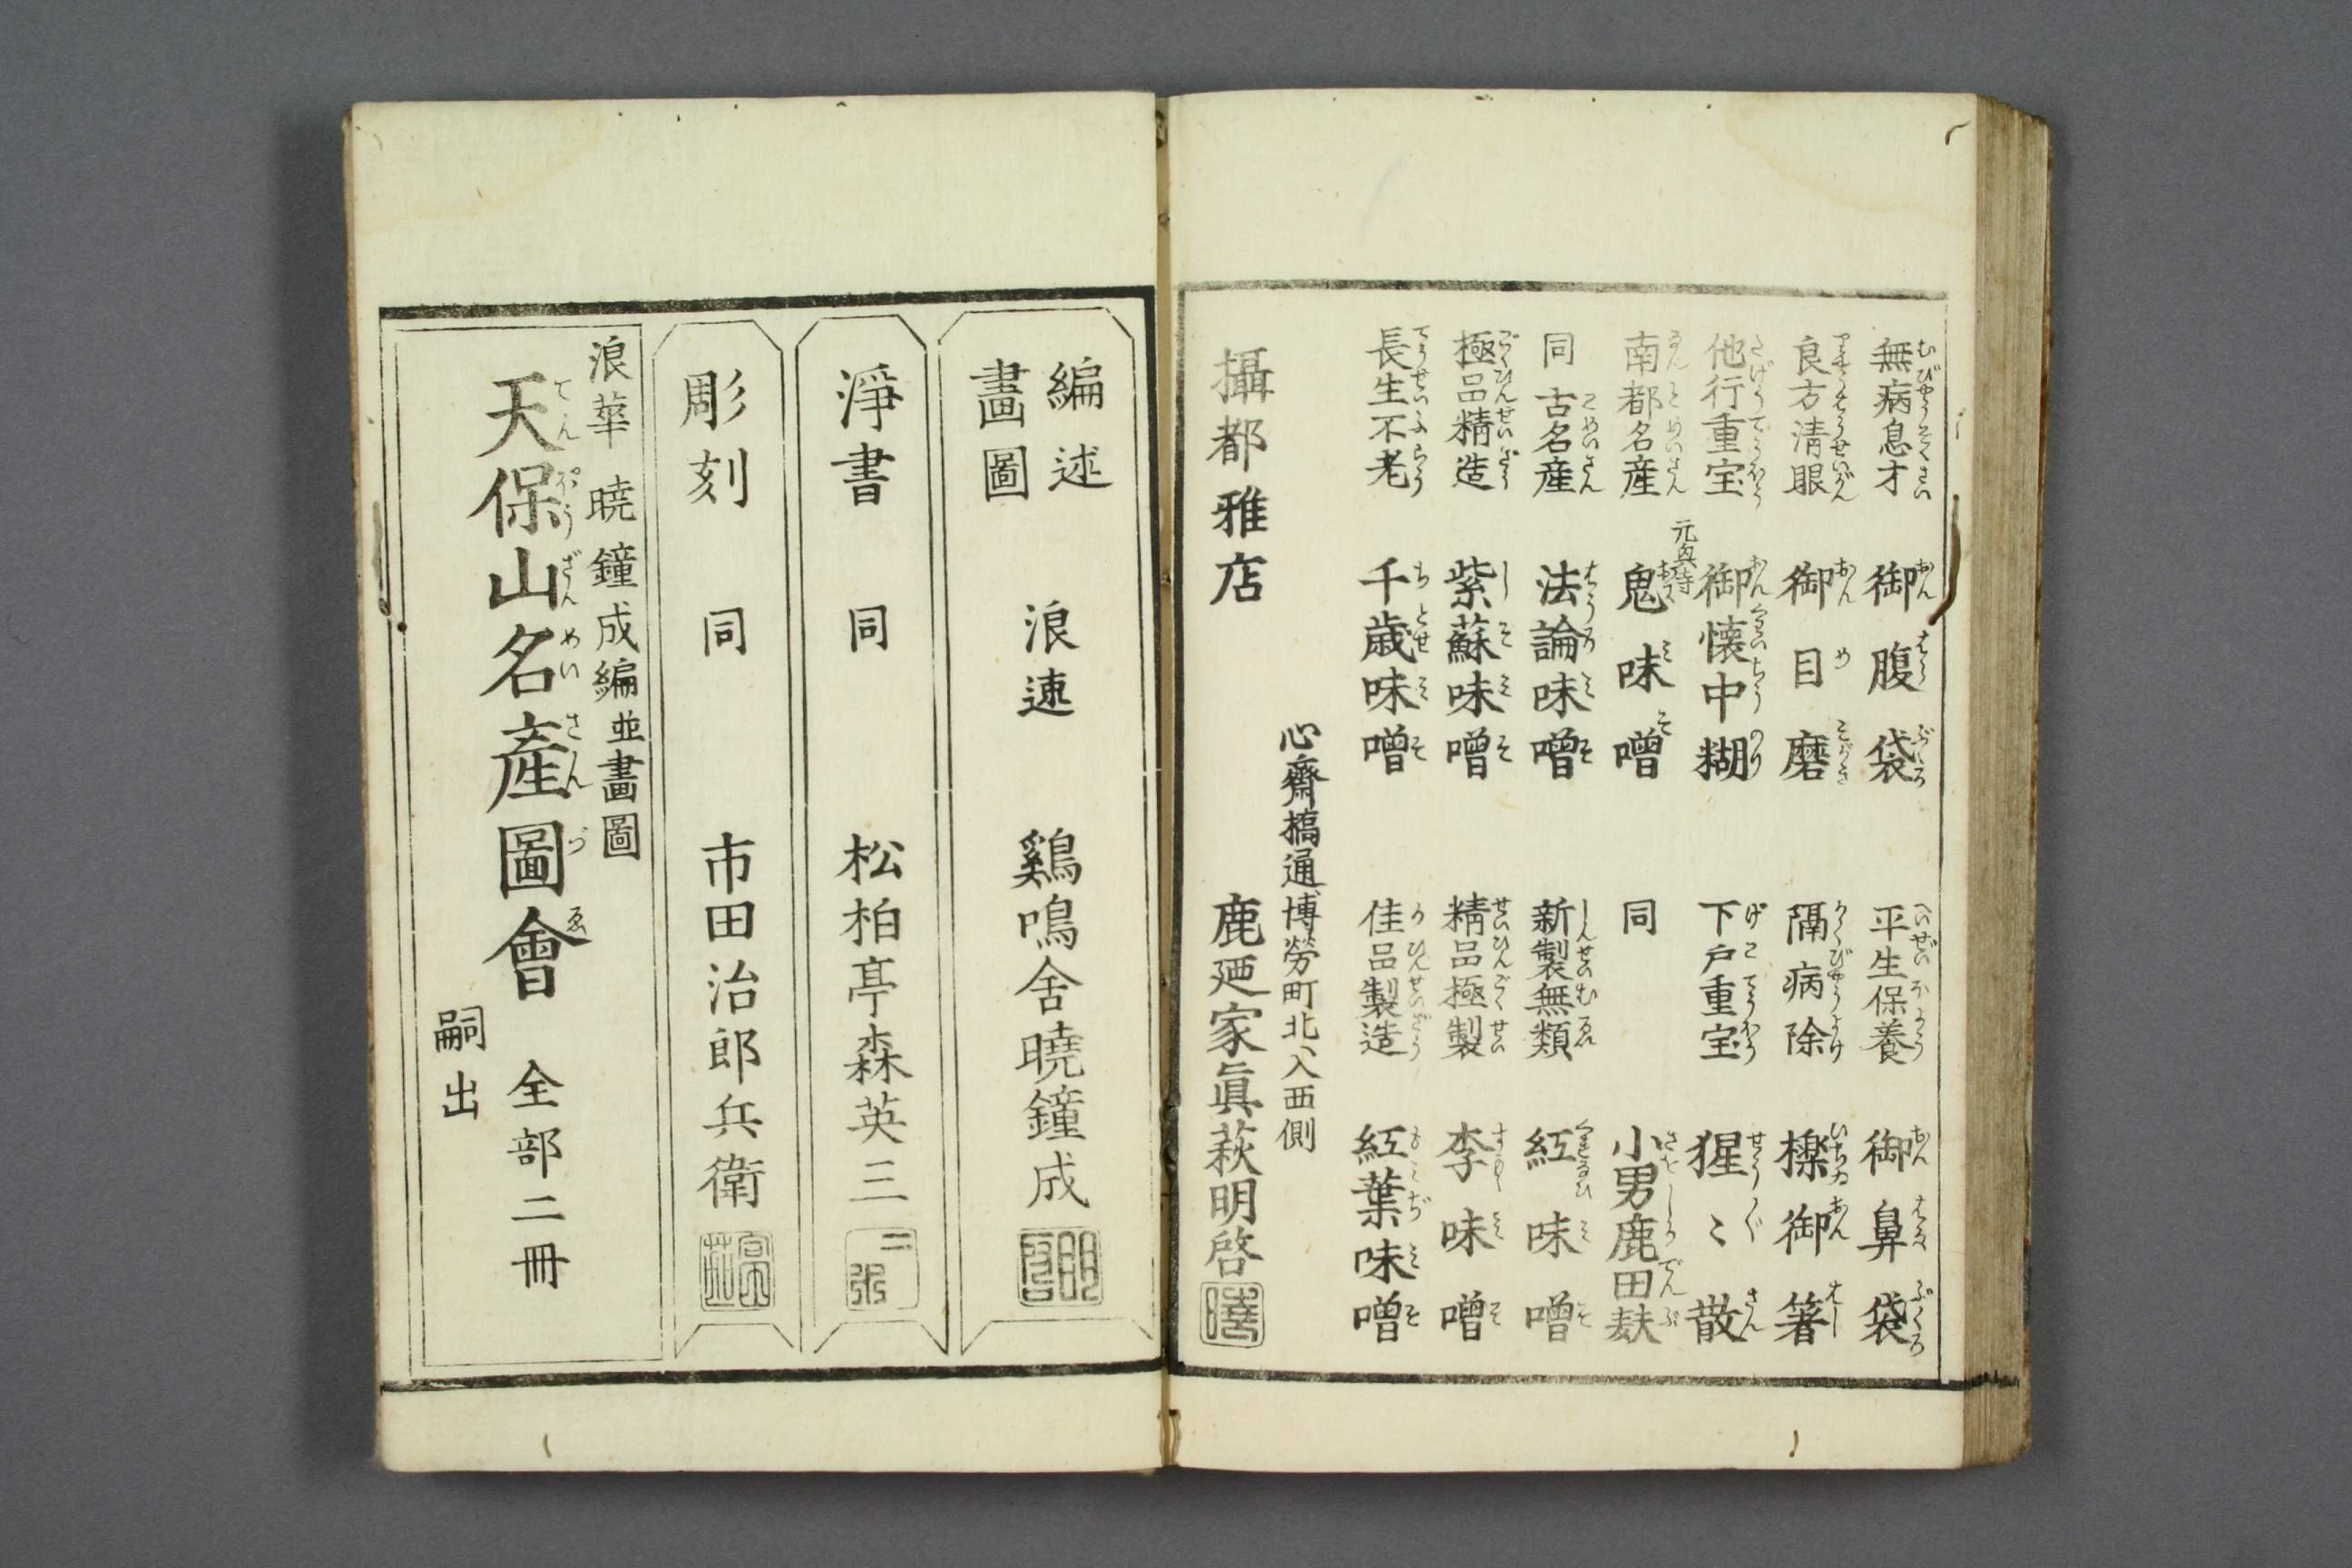 無病息才　御腹袋　平生保養　御鼻袋
良方清眼　御目磨　隔病除　櫟御箸
他行重宝　御懐中糊　下戸重宝　猩〻散
南都名産　元興寺　鬼味噌　同　小男鹿田麸
同　古名産　法論味噌　新製無類　紅味噌
極品精造　紫蘇味噌　精品極製　李味噌
長生不老　千歳味噌　佳品製造　紅葉味噌
心齋橋通博勞町北ヘ入西側
攝都雅店　鹿廼家眞萩明啓
編述
畫圖　浪速　鷄鳴舎曉鐘成
淨書　同　松柏亭森英三
彫刻　同　市田治郎兵衛
浪華　曉鐘成編並畫圖
天保山名產圖會　全部二冊
嗣出